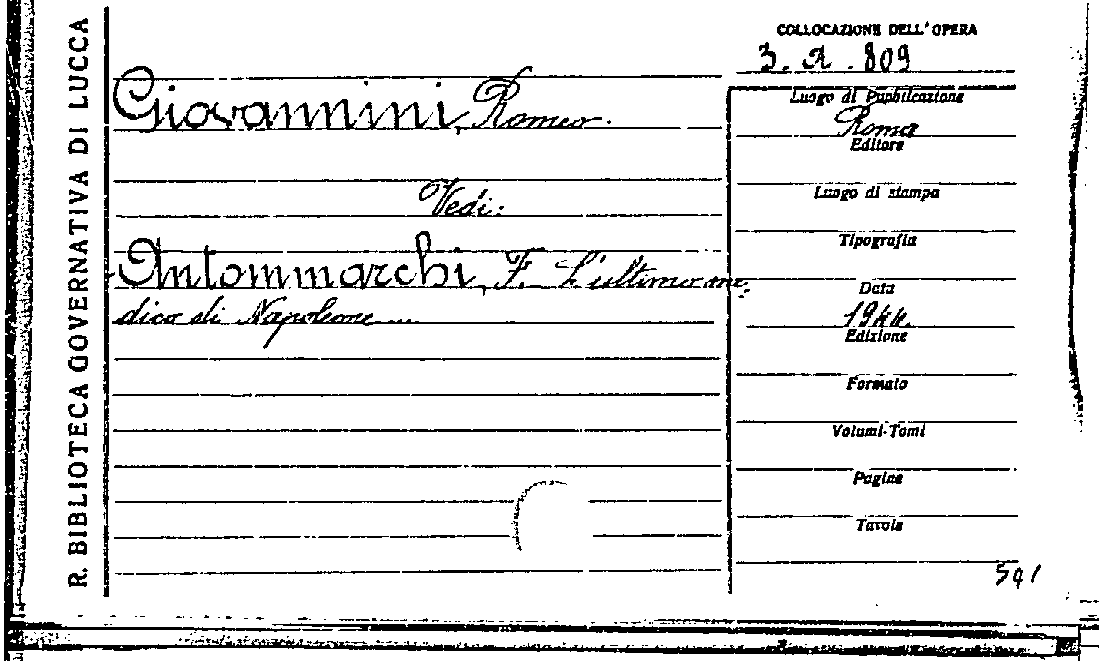 R. BIBLIOTECA GOVERNATIVA DI LUCCA
Giovannini, Romeo.
Vedi:
Antommarchi, F. L'ultimo me-
dico di Napoleone...
COLLOCAZIONE DELL'OPERA
3. A. 809
Luogo di Pubblicazione
Roma
Editore
Luogo di stampa
Tipografia
Data
1944.
Edizione
Formato
Volumi-Tomi
Pagine
Tavole
591